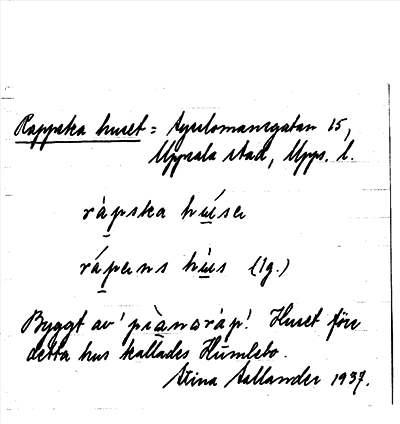 Rappska huset = Sysslomansgatan 15,
Uppsala stad, Upps. l.
ràpska hú̱se
rá̱pens hú̱s (lg.)
Byggt av 'pìanoráp'. Huset före
detta hus kallades Humlebo.
Stina Sallander 1937.